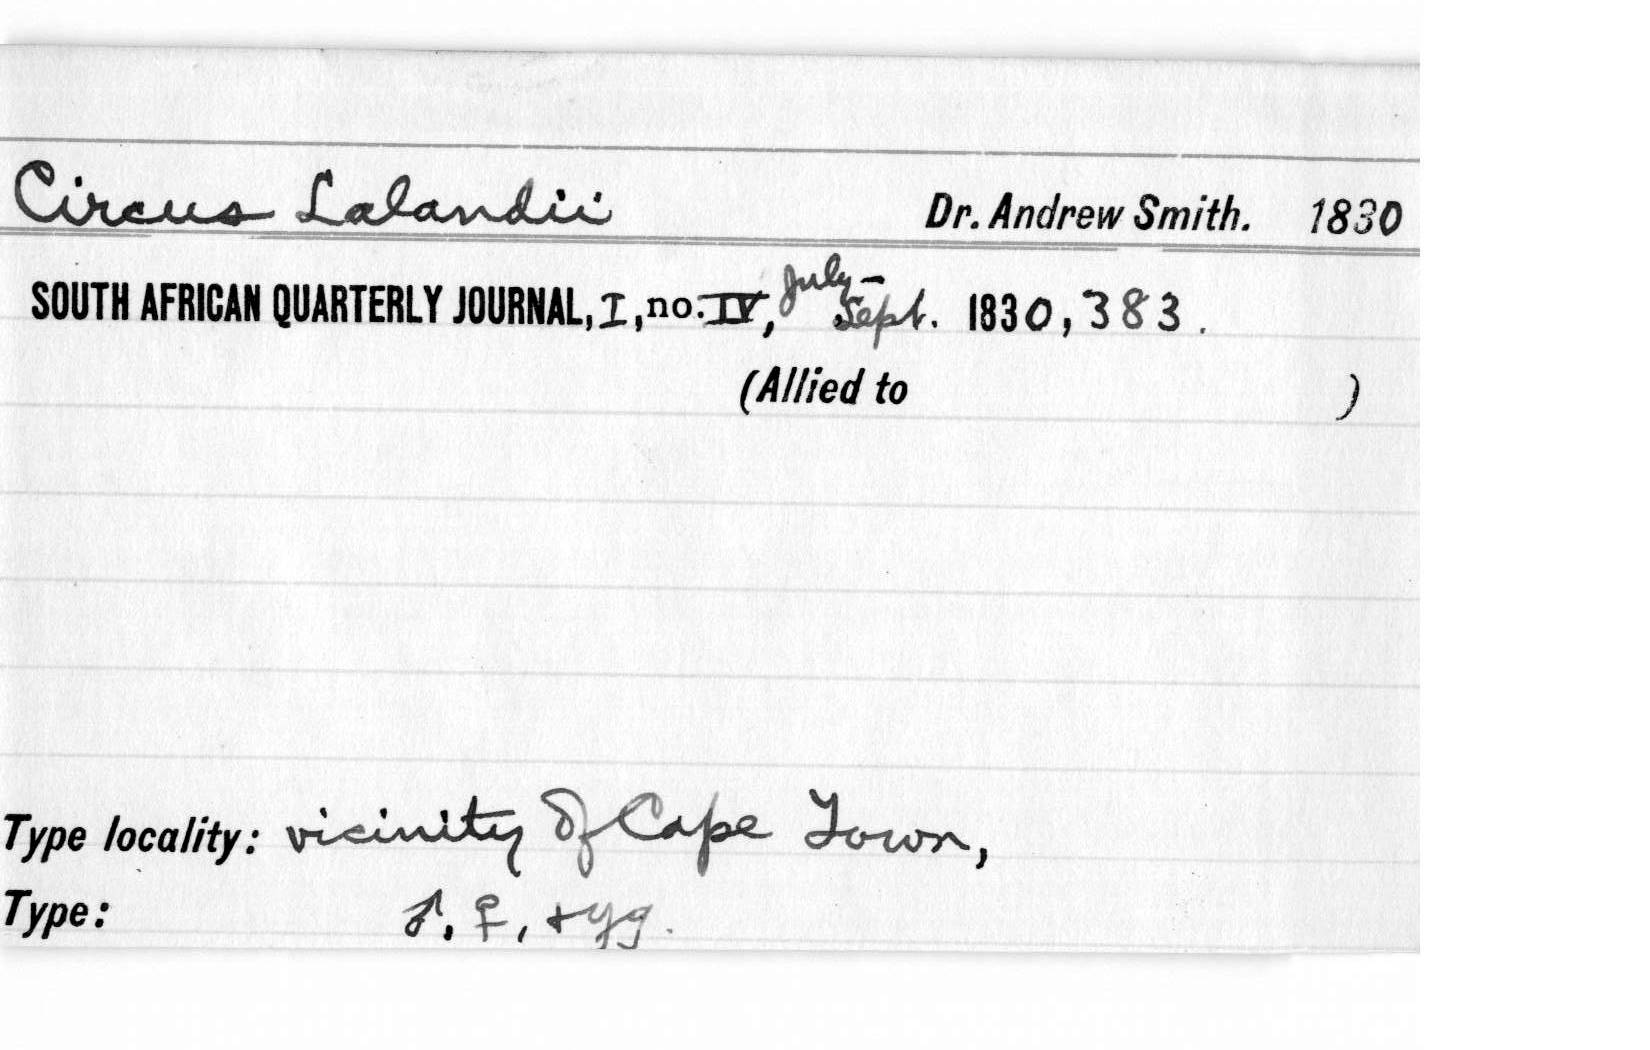 Circus Lalandii Dr. Andrew Smith. 1830
SOUTH AFRICAN QUARTERLY JOURNAL, I, no. IV, July - Sept. 1830, 383.
(Allied to )
Type locality: vicinity of Cape Town,
Type: ♂, ♀, + yg.